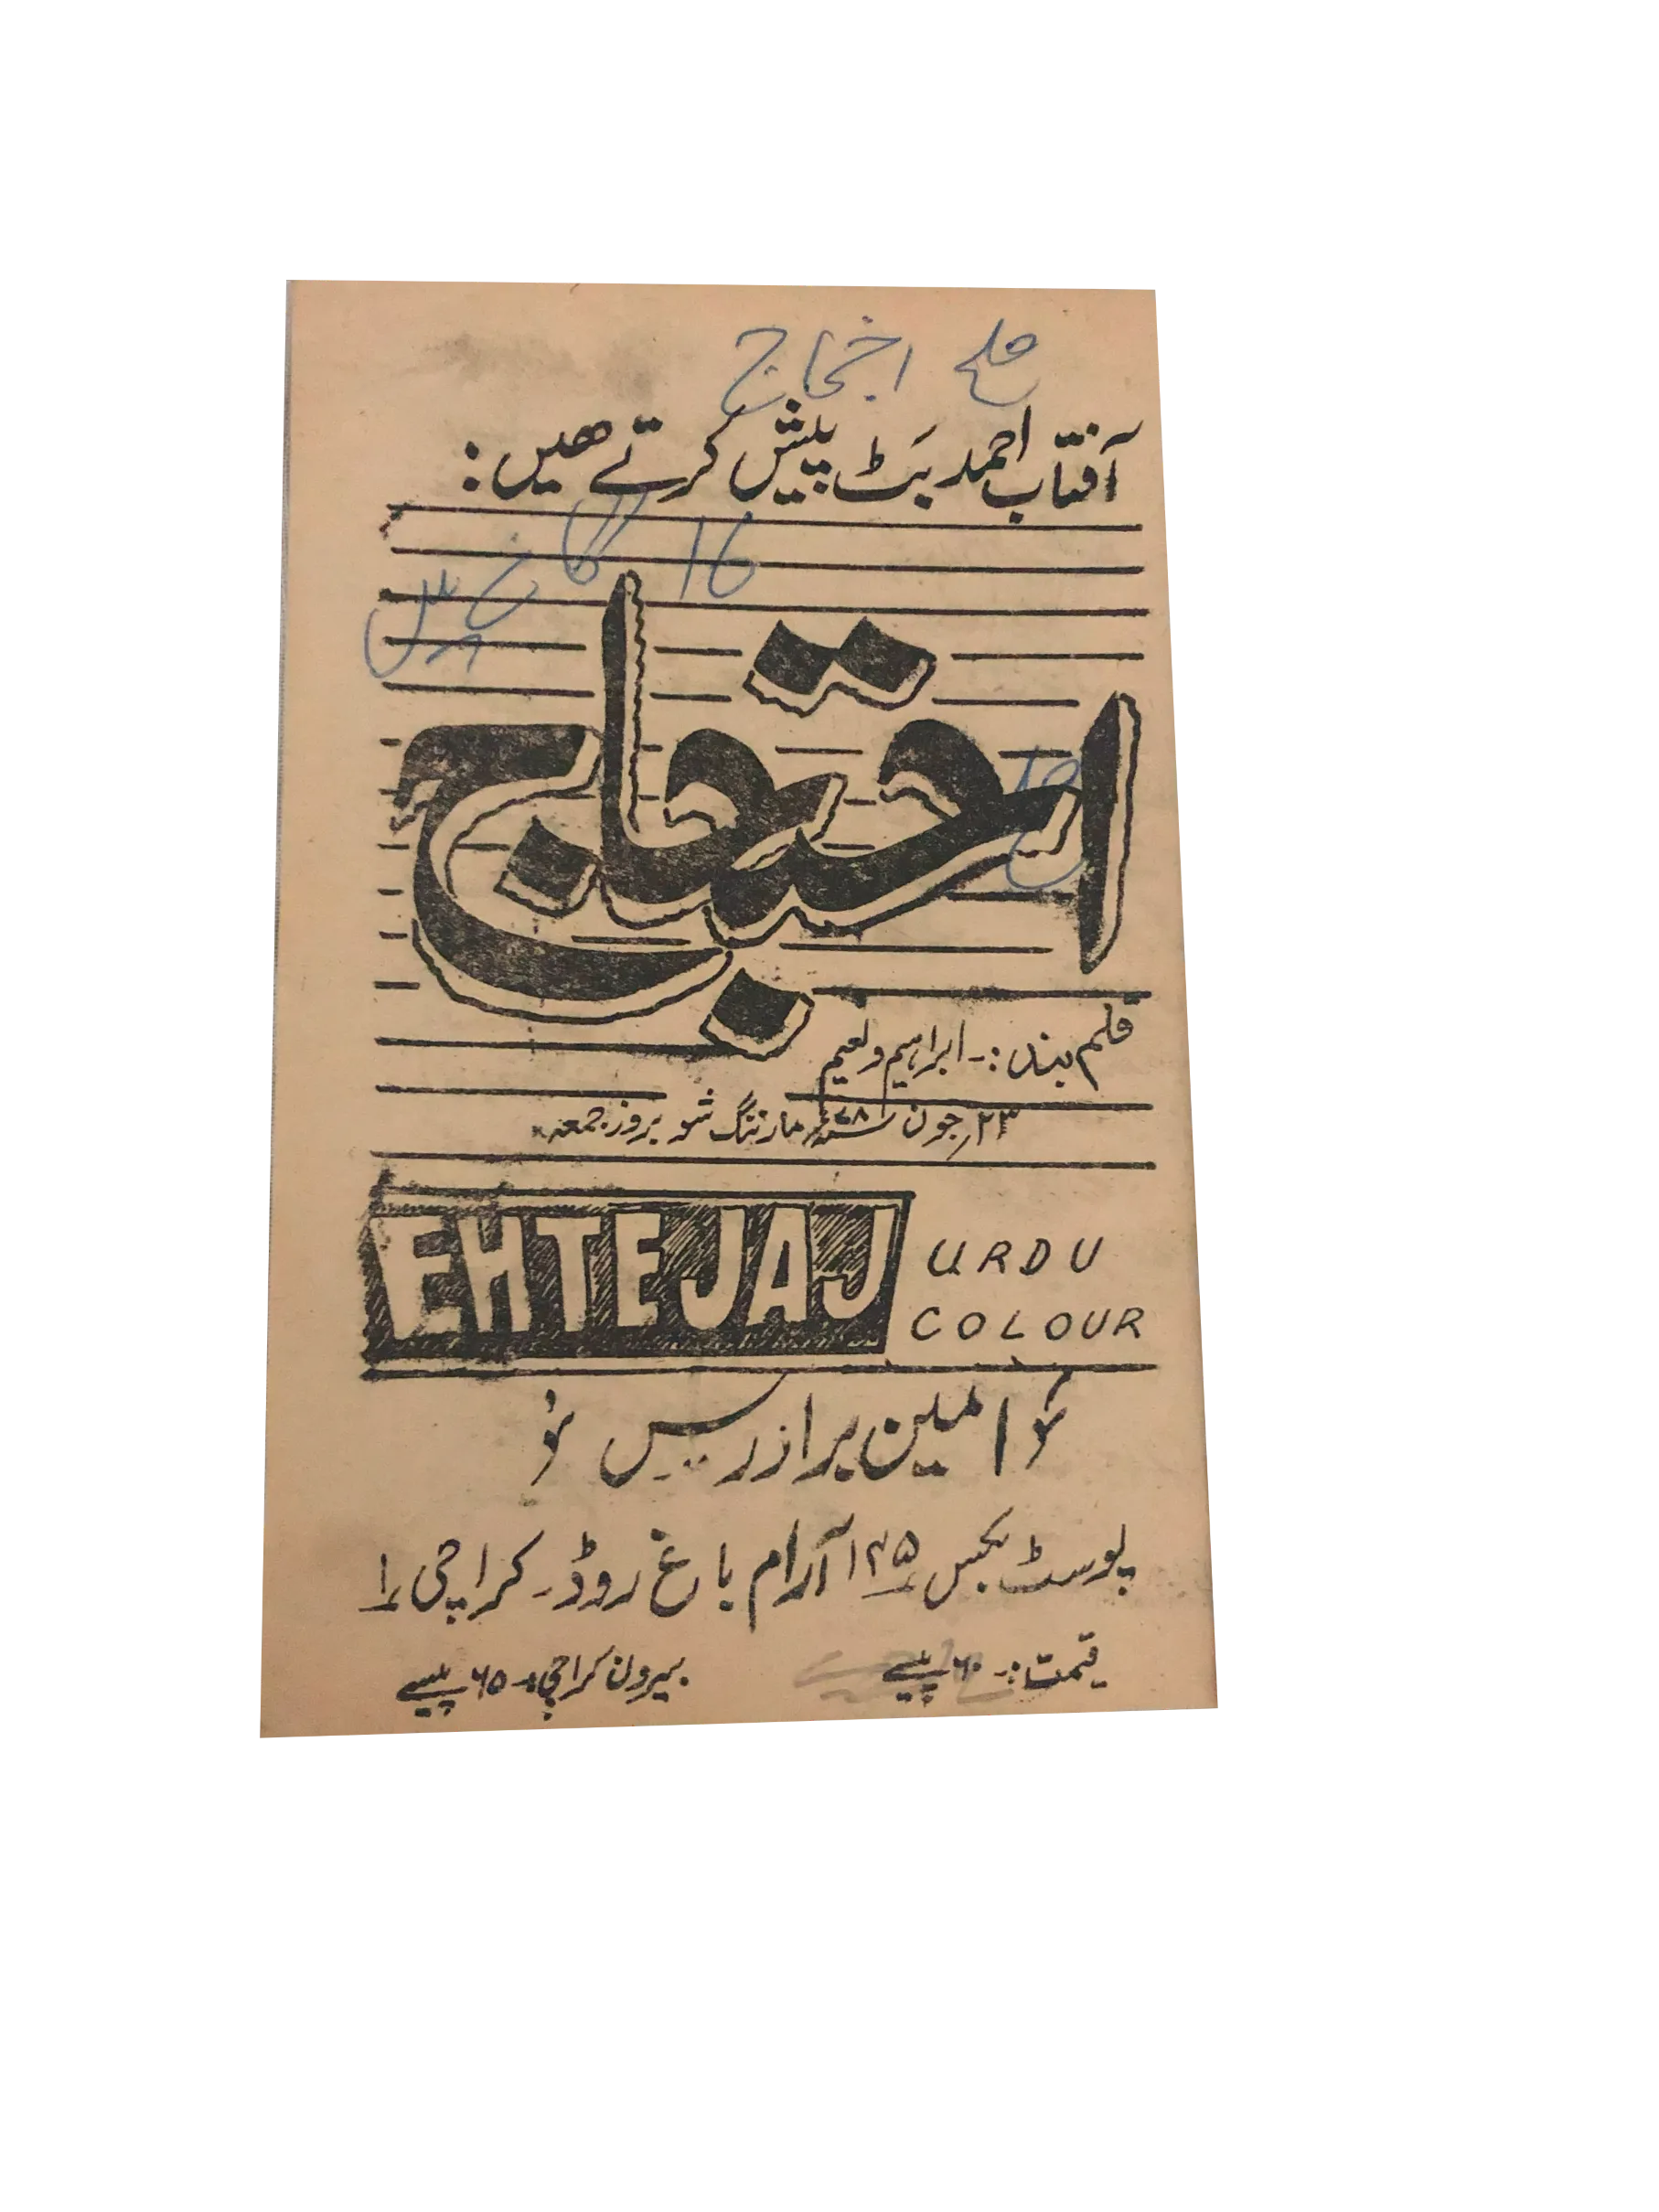 آفتاب احمد بَٹ پیش کرتے ھیں:
احتجاج
قلم بند:۔ ابراہیم ونعیم
۲۳؍جون ۷۸ء مارننگ شو بروز جمعہ
EHTEJAJ URDU
COLOUR
پوسٹ بکس ۱۲۵ آرام باغ روڈ۔ کراچی ۱
قیمت:۔ ۶۰ پیسے بیرون کراچی:۔ ۶۵ پیسے